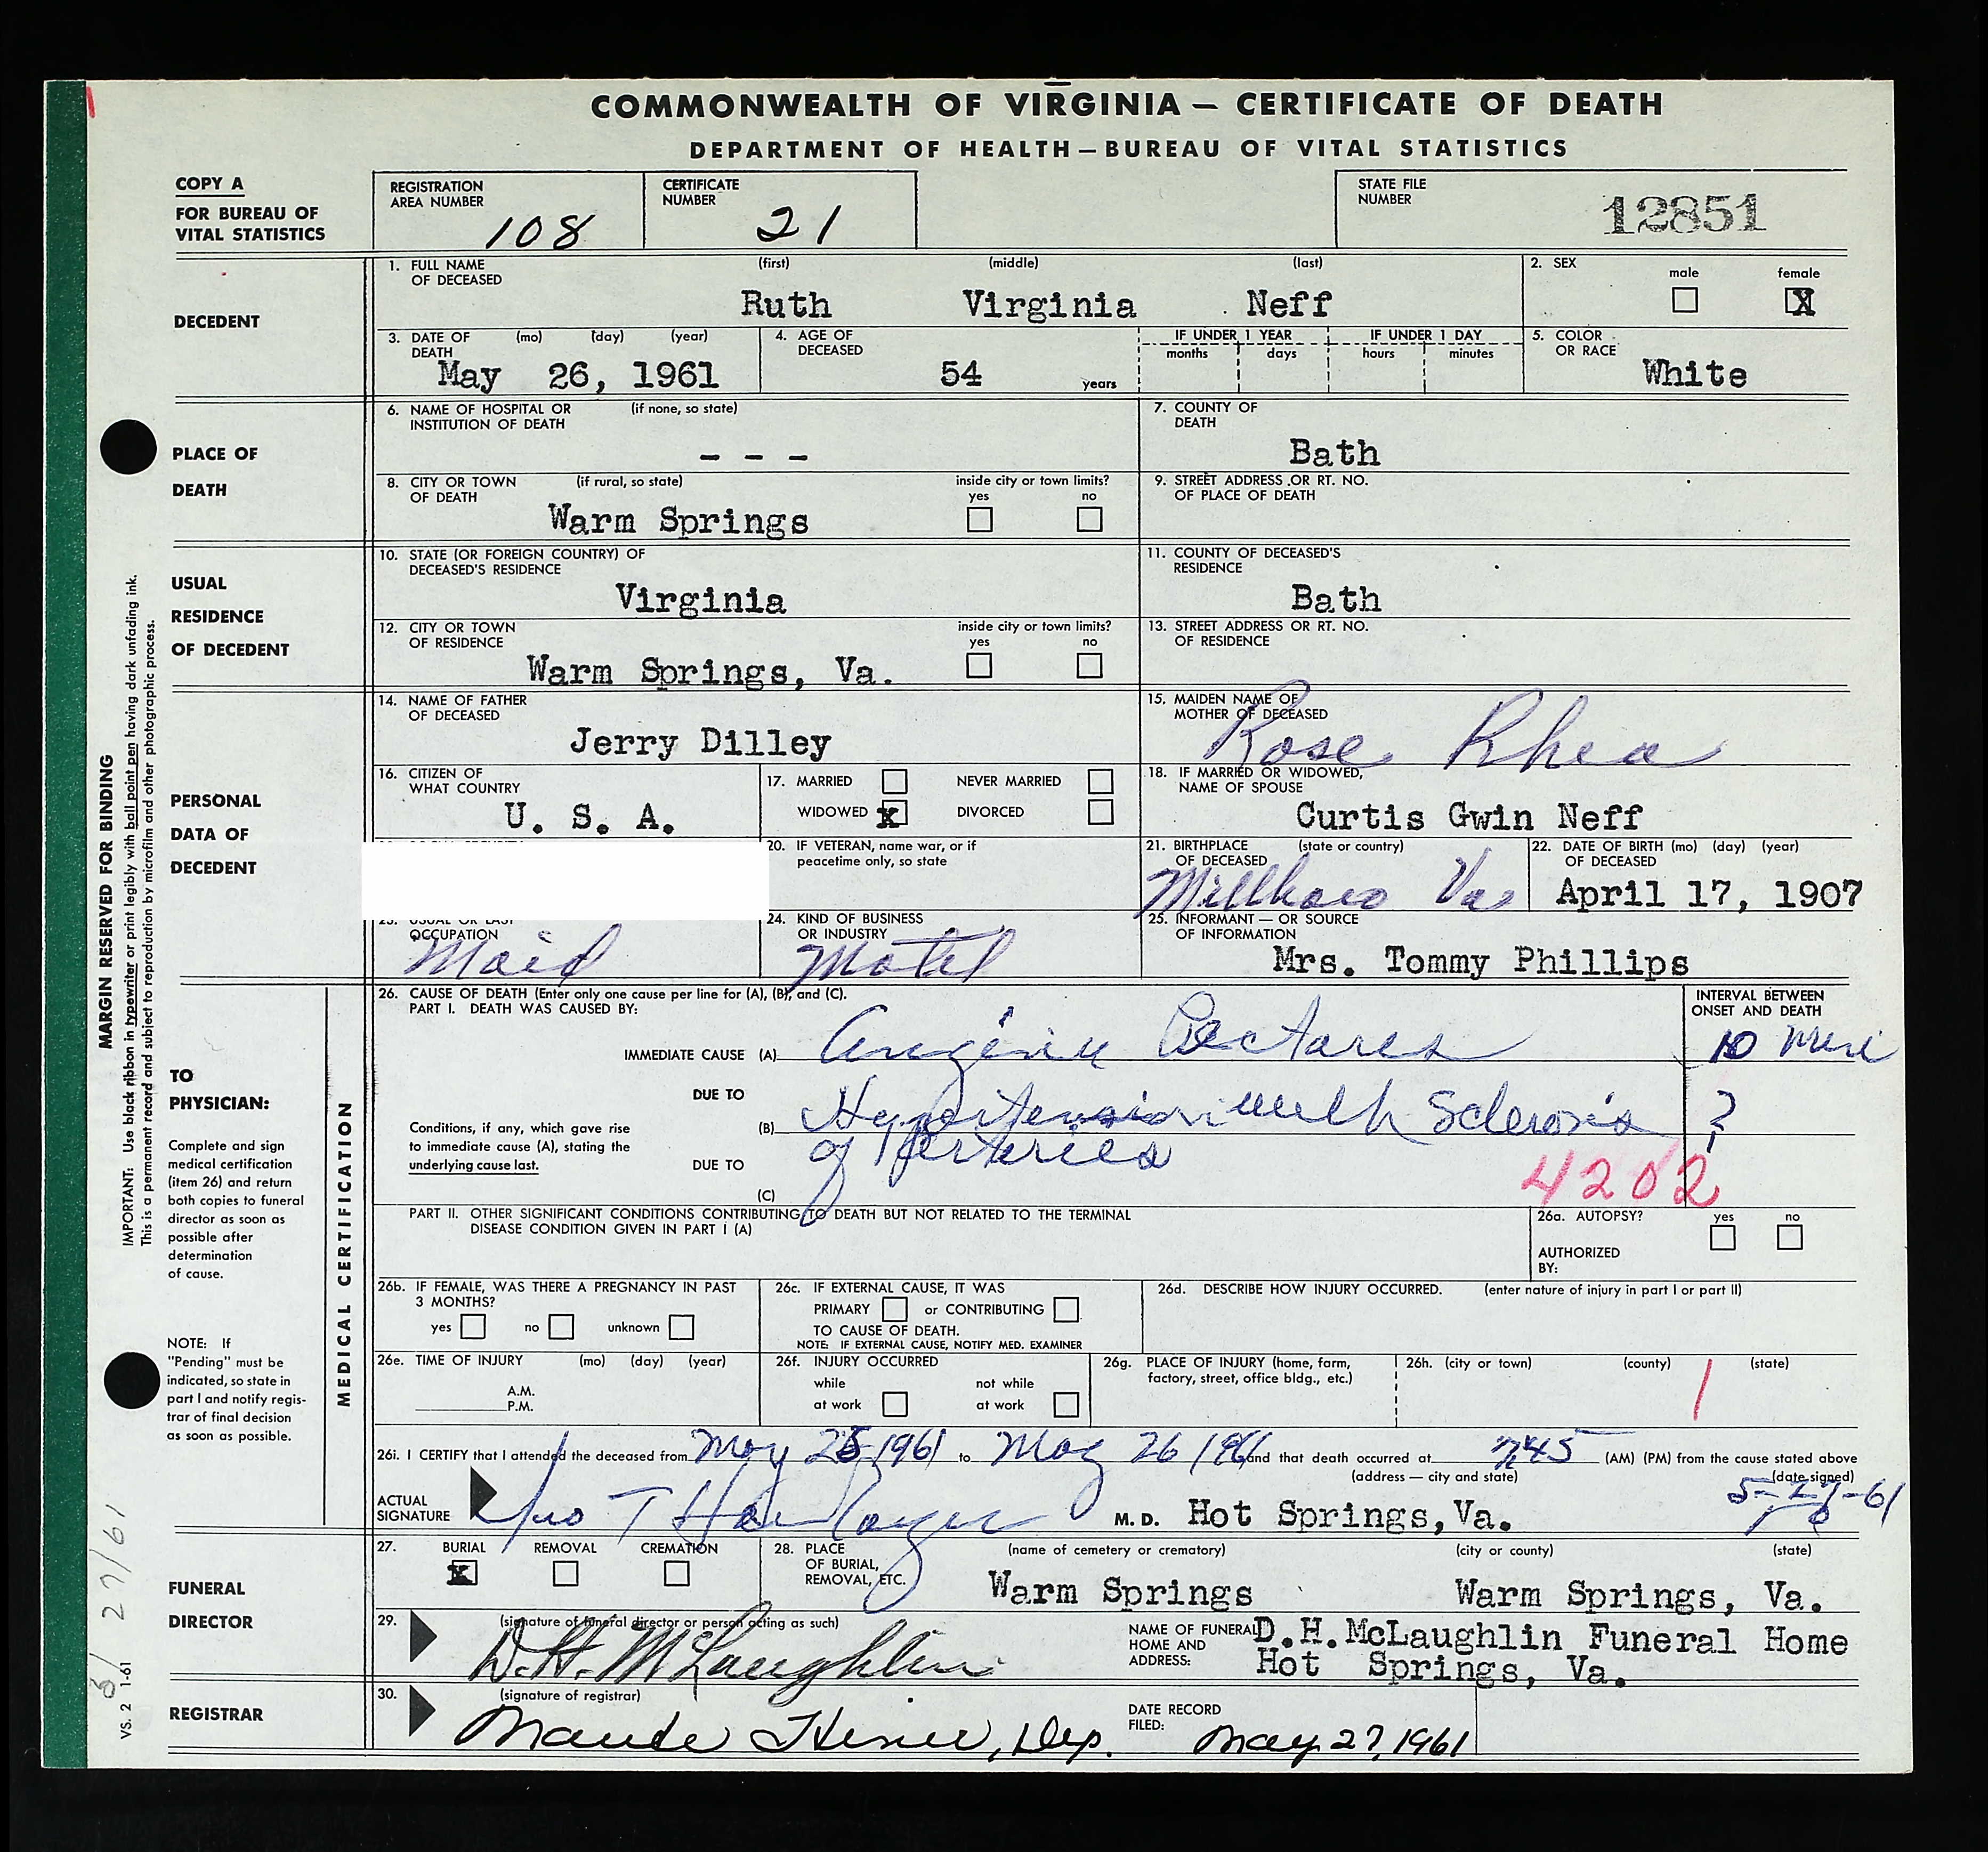 COMMONWEALTH OF VIRGINIA — CERTIFICATE OF DEATH
DEPARTMENT OF HEALTH — BUREAU OF VITAL STATISTICS
COPY A
FOR BUREAU OF
VITAL STATISTICS
REGISTRATION
AREA NUMBER
108
CERTIFICATE
NUMBER
21
STATE FILE
NUMBER
12851
DECEDENT
1. FULL NAME
OF DECEASED
(first) (middle) (last)
Ruth Virginia Neff
2. SEX
male female
X
3. DATE OF
DEATH
(mo) (day) (year)
May 26, 1961
4. AGE OF
DECEASED
54 years
IF UNDER 1 YEAR
months days
IF UNDER 1 DAY
hours minutes
5. COLOR
OR RACE
White
PLACE OF
DEATH
6. NAME OF HOSPITAL OR
INSTITUTION OF DEATH
(if none, so state)
- - -
7. COUNTY OF
DEATH
Bath
8. CITY OR TOWN
OF DEATH
(if rural, so state)
Warm Springs
inside city or town limits?
yes no
9. STREET ADDRESS OR RT. NO.
OF PLACE OF DEATH
USUAL
RESIDENCE
OF DECEDENT
10. STATE (OR FOREIGN COUNTRY) OF
DECEASED'S RESIDENCE
Virginia
11. COUNTY OF DECEASED'S
RESIDENCE
Bath
12. CITY OR TOWN
OF RESIDENCE
Warm Springs, Va.
inside city or town limits?
yes no
13. STREET ADDRESS OR RT. NO.
OF RESIDENCE
PERSONAL
DATA OF
DECEDENT
14. NAME OF FATHER
OF DECEASED
Jerry Dilley
15. MAIDEN NAME OF
MOTHER OF DECEASED
Rose Rhea
16. CITIZEN OF
WHAT COUNTRY
U. S. A.
17. MARRIED NEVER MARRIED
WIDOWED x DIVORCED
18. IF MARRIED OR WIDOWED,
NAME OF SPOUSE
Curtis Gwin Neff
20. IF VETERAN, name war, or if
peacetime only, so state
21. BIRTHPLACE
OF DECEASED
(state or country)
Millboro Va
22. DATE OF BIRTH (mo) (day) (year)
OF DECEASED
April 17, 1907
23. USUAL OR LAST
OCCUPATION
Maid
24. KIND OF BUSINESS
OR INDUSTRY
Motel
25. INFORMANT — OR SOURCE
OF INFORMATION
Mrs. Tommy Phillips
MARGIN RESERVED FOR BINDING
IMPORTANT: Use black ribbon in typewriter or print legibly with ball point pen having dark unfading ink.
This is a permanent record and subject to reproduction by microfilm and other photographic process.
TO
PHYSICIAN:
Complete and sign
medical certification
(item 26) and return
both copies to funeral
director as soon as
possible after
determination
of cause.
NOTE: If
"Pending" must be
indicated, so state in
part I and notify regis-
trar of final decision
as soon as possible.
MEDICAL CERTIFICATION
26. CAUSE OF DEATH (Enter only one cause per line for (A), (B), and (C).
PART I. DEATH WAS CAUSED BY:
INTERVAL BETWEEN
ONSET AND DEATH
IMMEDIATE CAUSE (A) Angina Pectores
10 Min
DUE TO
Conditions, if any, which gave rise
to immediate cause (A), stating the
underlying cause last.
(B) Hypertension with Sclerosis
of Arteries
?
DUE TO
(C)
4202
PART II. OTHER SIGNIFICANT CONDITIONS CONTRIBUTING TO DEATH BUT NOT RELATED TO THE TERMINAL
DISEASE CONDITION GIVEN IN PART I (A)
26a. AUTOPSY? yes no
AUTHORIZED
BY:
26b. IF FEMALE, WAS THERE A PREGNANCY IN PAST
3 MONTHS?
yes no unknown
26c. IF EXTERNAL CAUSE, IT WAS
PRIMARY or CONTRIBUTING
TO CAUSE OF DEATH.
NOTE: IF EXTERNAL CAUSE, NOTIFY MED. EXAMINER
26d. DESCRIBE HOW INJURY OCCURRED. (enter nature of injury in part I or part II)
26e. TIME OF INJURY (mo) (day) (year)
A.M.
P.M.
26f. INJURY OCCURRED
while not while
at work at work
26g. PLACE OF INJURY (home, farm,
factory, street, office bldg., etc.)
26h. (city or town) (county) (state)
1
26i. I CERTIFY that I attended the deceased from May 25 1961 to May 26 1961 and that death occurred at 745 (AM) (PM) from the cause stated above
(address — city and state) (date signed)
ACTUAL
SIGNATURE
M. D. Hot Springs, Va. 5-27-61
FUNERAL
DIRECTOR
27. BURIAL REMOVAL CREMATION
x
28. PLACE
OF BURIAL,
REMOVAL, ETC.
(name of cemetery or crematory) (city or county) (state)
Warm Springs Warm Springs, Va.
29. (signature of funeral director or person acting as such)
D.H. McLaughlin
NAME OF FUNERAL
HOME AND
ADDRESS:
D.H.McLaughlin Funeral Home
Hot Springs, Va.
REGISTRAR
30. (signature of registrar)
Maude Hiner, Dep.
DATE RECORD
FILED:
May 27, 1961
VS. 2 1-61